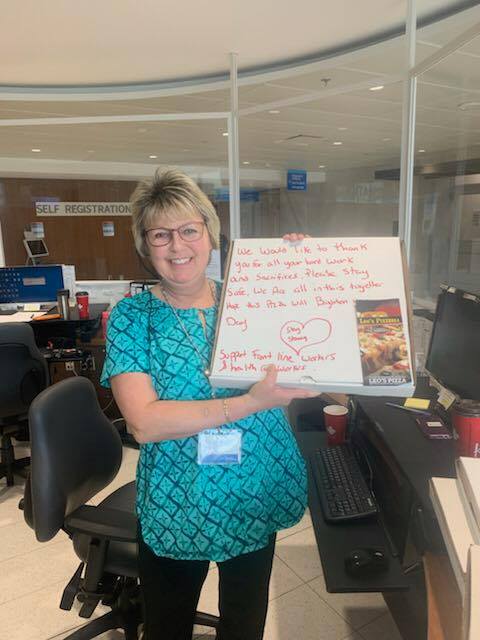 SELF REGISTRATION
We Would like to thank
you for all your hard work
and Sacrifices. Please Stay
Safe, We Are all in this together
Hope this Pizza Will Brighten
Day
Stay
Strong
Support Front line Workers
& health Workers
LEO'S PIZZERIA
LEO'S PIZZA